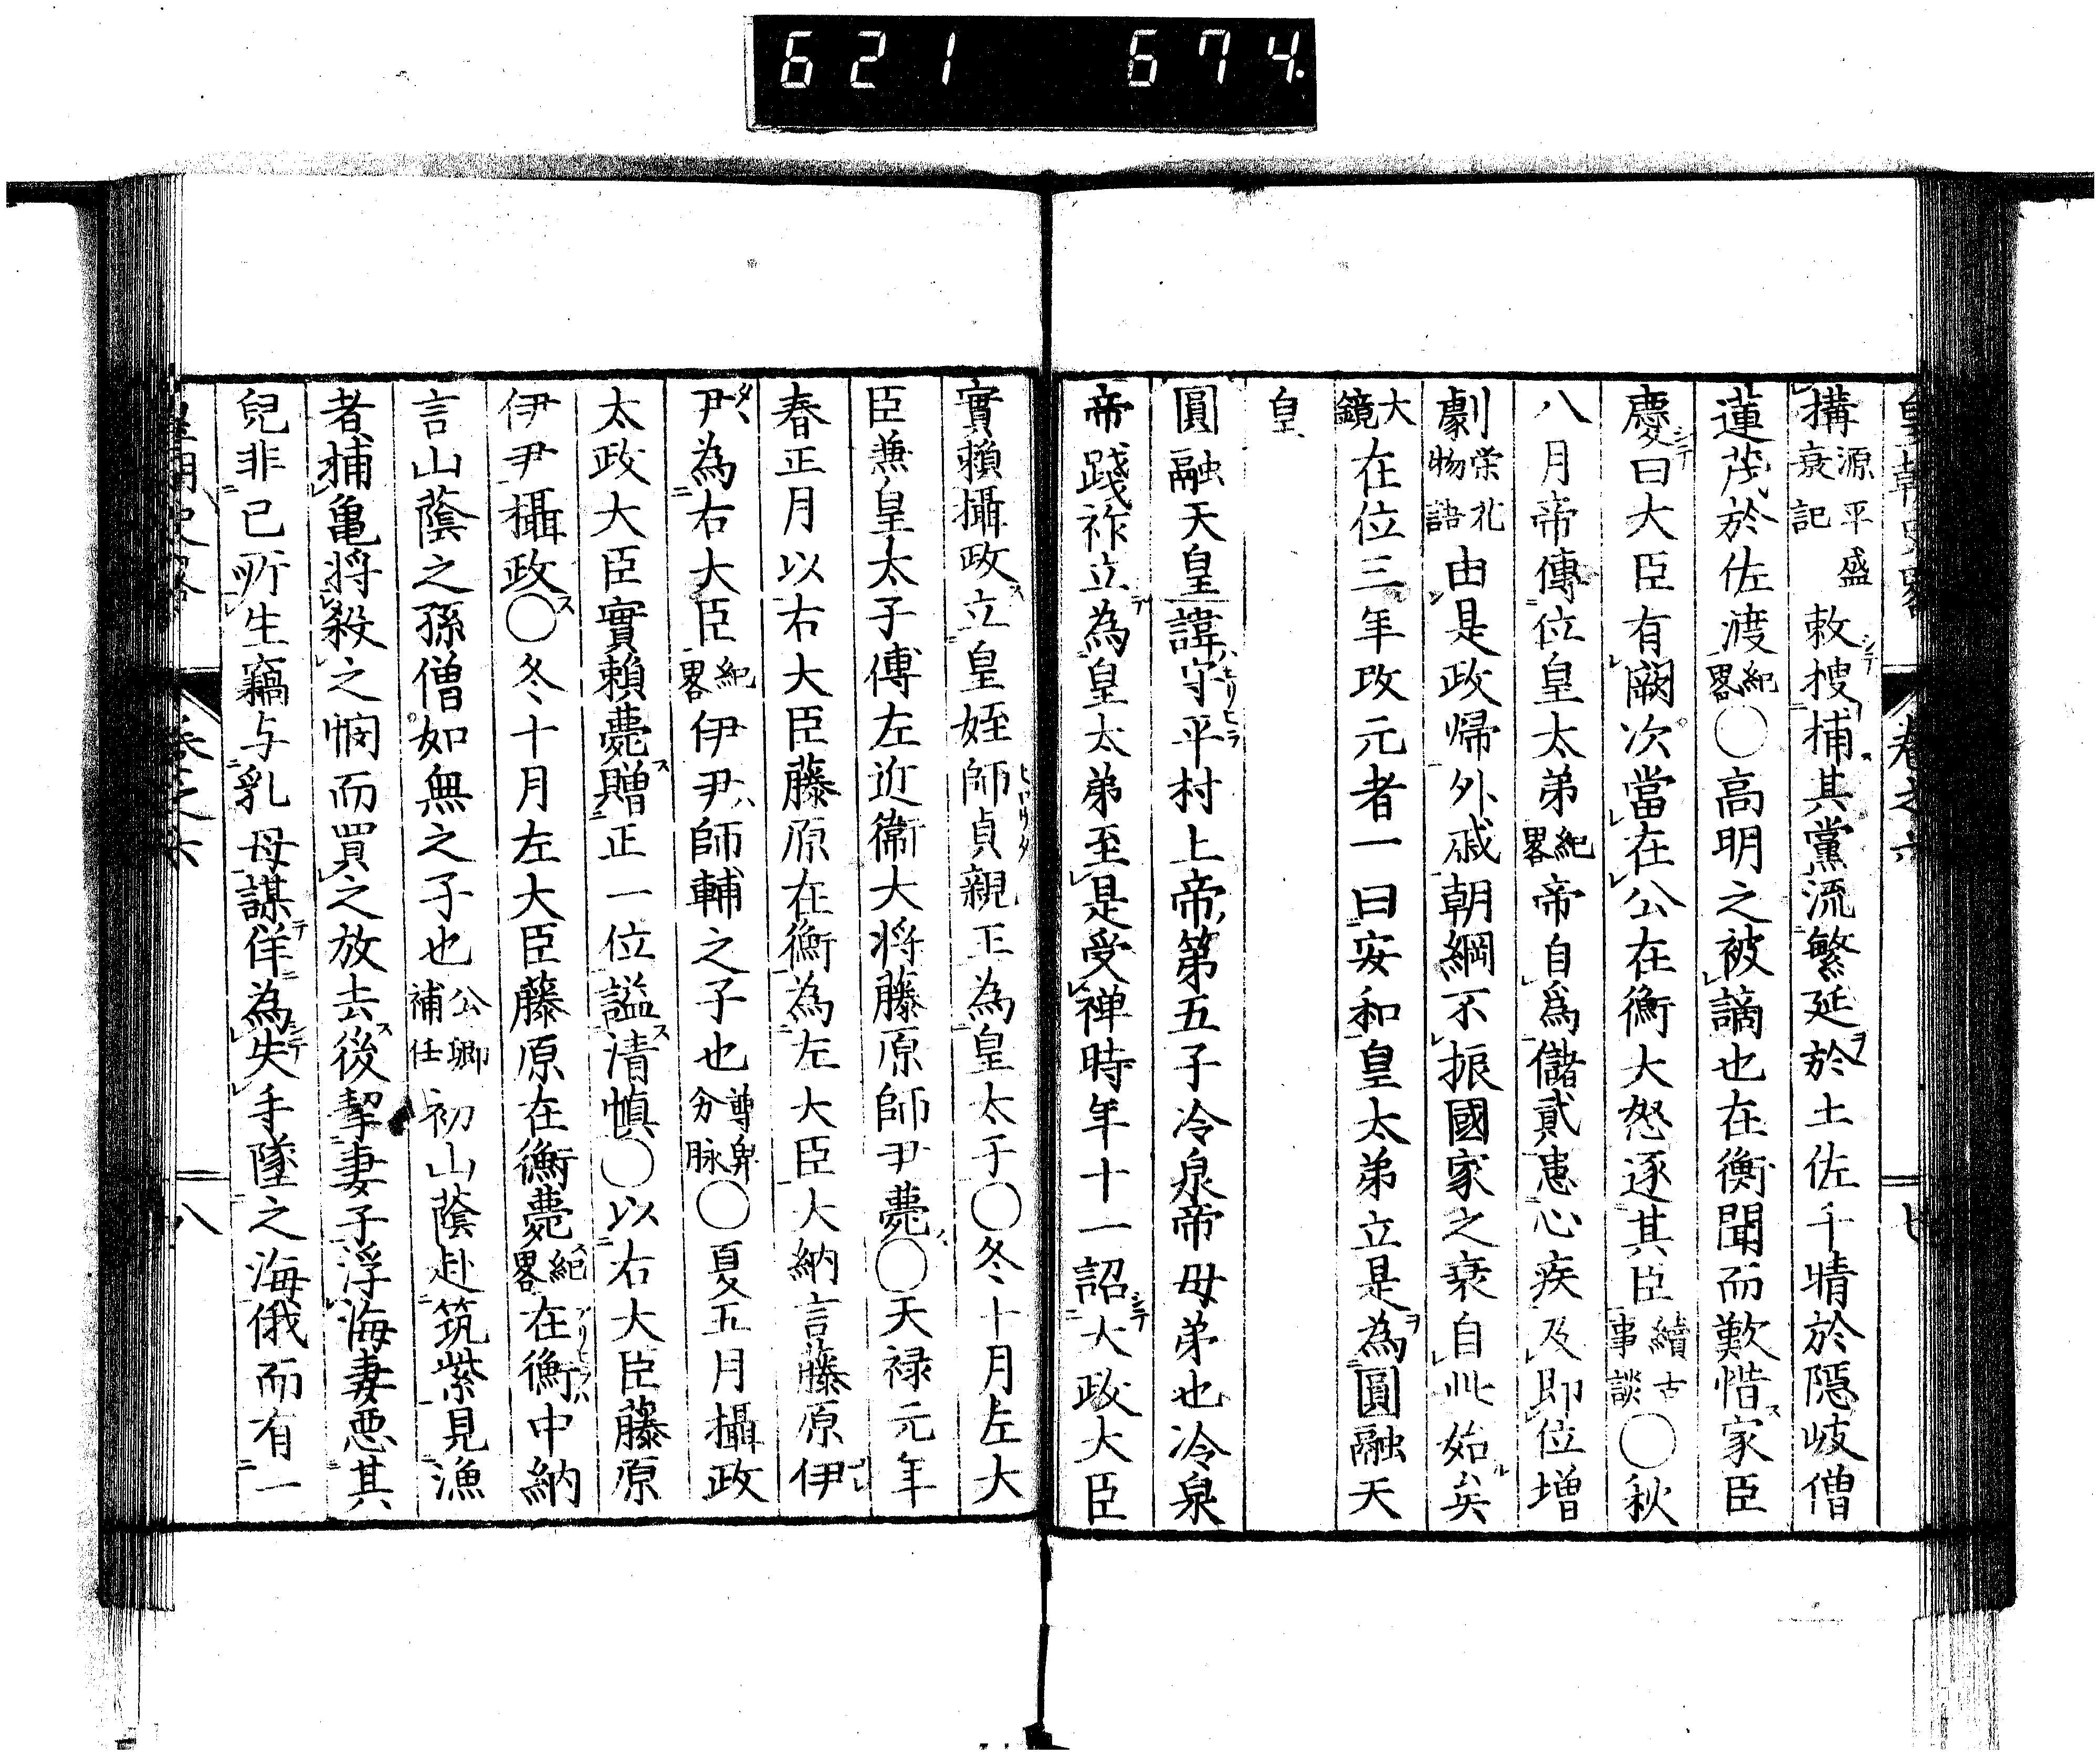 621 674.
皇朝史略 卷之六 七
搆源平盛衰記敕搜捕其黨流繁延於土佐千晴於隱岐僧
蓮茂於佐渡紀畧〇高明之被謫也在衡聞而歎惜家臣
慶曰大臣有闕次當在公在衡大怒逐其臣續古事談〇秋
八月帝傳位皇太弟紀畧帝自爲儲貳患心疾及即位增
劇榮花物語由是政歸外戚朝綱不振國家之衰自此始矣
大鏡在位三年改元者一曰安和皇太弟立是為圓融天
皇
圓融天皇諱守平村上帝第五子冷泉帝母弟也冷泉
帝踐祚立為皇太弟至是受禅時年十一詔大政大臣
實賴攝政立皇姪師貞親王為皇太子〇冬十月左大
臣兼皇太子傅左近衛大将藤原師尹薨〇天禄元年
春正月以右大臣藤原在衡為左大臣大納言藤原伊
尹為右大臣紀畧伊尹師輔之子也尊卑分脉〇夏五月攝政
太政大臣實賴薨贈正一位謚清慎〇以右大臣藤原
伊尹攝政〇冬十月左大臣藤原在衡薨紀畧在衡中納
言山蔭之孫僧如無之子也公卿補任初山蔭赴筑紫見漁
者捕亀将殺之憫而買之放去後挈妻子浮海妻悪其
兒非已所生竊与乳母謀佯為失手墜之海俄而有一
皇朝史畧 卷之六 八